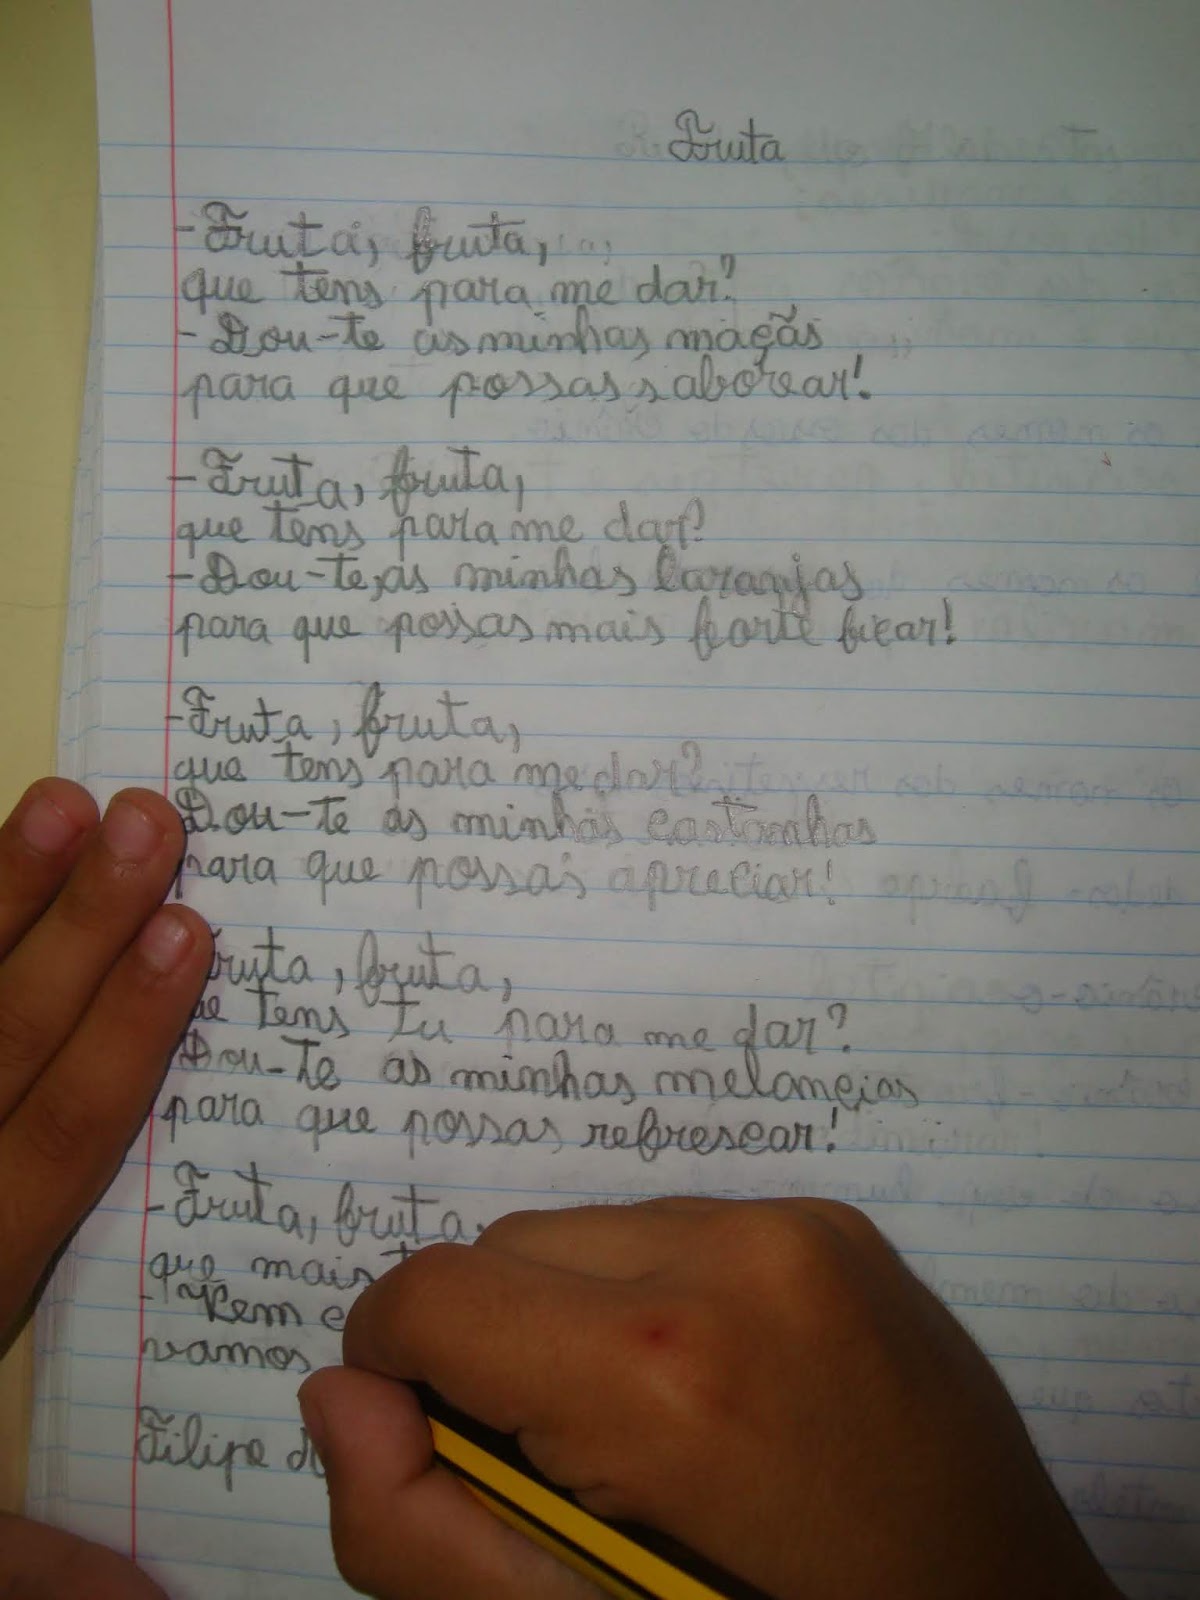 Fruta
- Fruta, fruta,
que tens para me dar?
- Dou-te as minhas maçãs
para que possas saborear!
- Fruta, fruta,
que tens para me dar?
- Dou-te as minhas laranjas
para que possas mais forte ficar!
- Fruta, fruta,
que tens para me dar?
Dou-te as minhas castanhas
para que possas apreciar!
Fruta, fruta,
tens tu para me dar?
Dou-te as minhas melancias
para que possas refrescar!
- Fruta, fruta,
que mais
- Vem e
vamos
Filipe